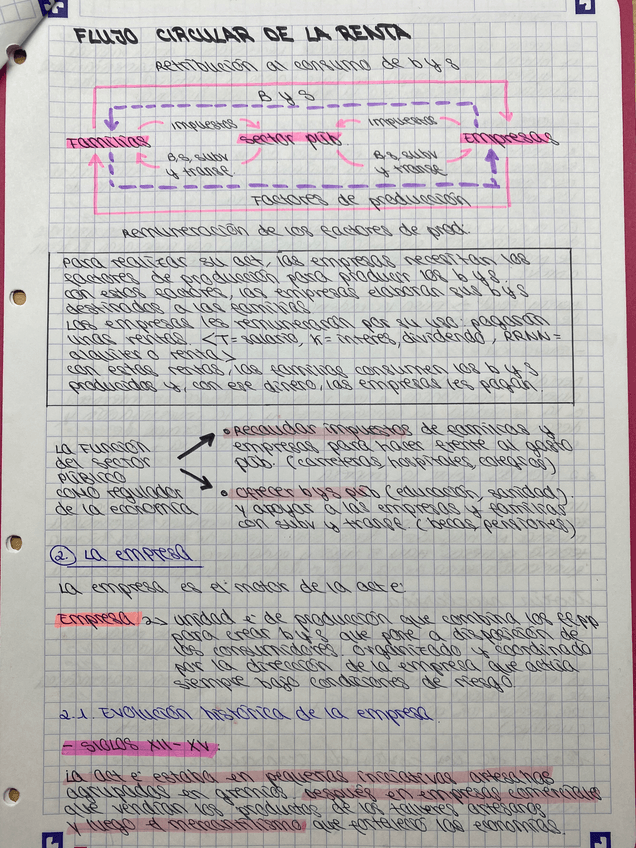 FLUJO CIRCULAR DE LA RENTA
Retribución al consumo de b y s
B y s
impuestos
impuestos
Familias
sector púb
Empresas
B.s, subv
y transf.
B.s, subv
y transf.
Factores de producción
Remuneración de los factores de prod.
Para realizar su act, las empresas necesitan los
factores de producción para producir los b y s.
con estos factores, las empresas elaboran sus b y s
destinados a las familias
Las empresas les remunerarán por su uso: pagarán
unas rentas. <T= salario, K= interés, dividendo, RRNN=
alquiler o renta>
con estas rentas, las familias consumen los b y s
producidos y, con ese dinero, las empresas les pagan.
La función
del sector
público
como regulador
de la economía
• Recaudar impuestos de familias y
empresas para hacer frente al gasto
púb. (carreteras, hospitales, colegios)
• ofrecer b y s púb (educación, sanidad)
y apoyar a las empresas y familias
con subv y transf. (becas, pensiones)
2. La empresa
La empresa es el motor de la act e.
Empresa → unidad e. de producción que combina los ffpp
para crear b y s que pone a disposición de
los consumidores. organizado y coordinado
por la dirección de la empresa que actúa
siempre bajo condiciones de riesgo.
2.1. Evolución histórica de la empresa.
- SIGLOS XII-XV:
La act e. estaba en pequeñas iniciativas artesanas
agrupadas en gremios, después en empresas comerciales
que vendían los productos de los talleres artesanos
y luego el mercantilismo que fortaleció las economías.